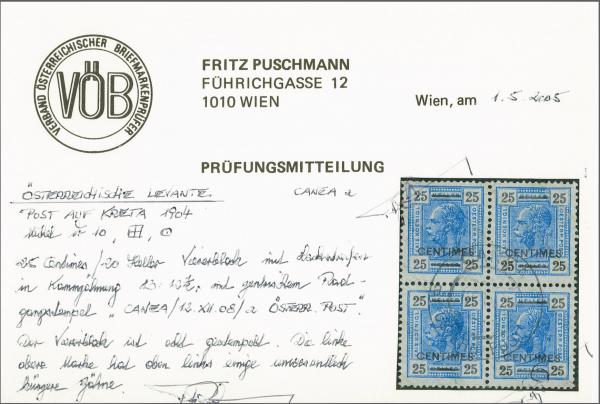 VERBAND ÖSTERREICHISCHER BRIEFMARKENPRÜFER
VÖB
FRITZ PUSCHMANN
FÜHRICHGASSE 12
1010 WIEN
Wien, am 1.5.2005
PRÜFUNGSMITTEILUNG
ÖSTERREICHISCHE LEVANTE CANEA a
POST AUF KRETA 1904
Michel Nr 10,
25 Centimes / 20 Heller Viererblock mit
in Kammzähnung 13:12½, mit
gangsstempel "CANEA/12.XII.08/a ÖSTERR. POST".
Der Viererblock ist echt gestempelt. Die linke
obere Marke hat oben links einige unwesentlich
kürzere Zähne.
25 25 25 25
CENTIMES CENTIMES
25 25 25 25
25 25 25 25
CENTIMES CENTIMES
25 25 25 25